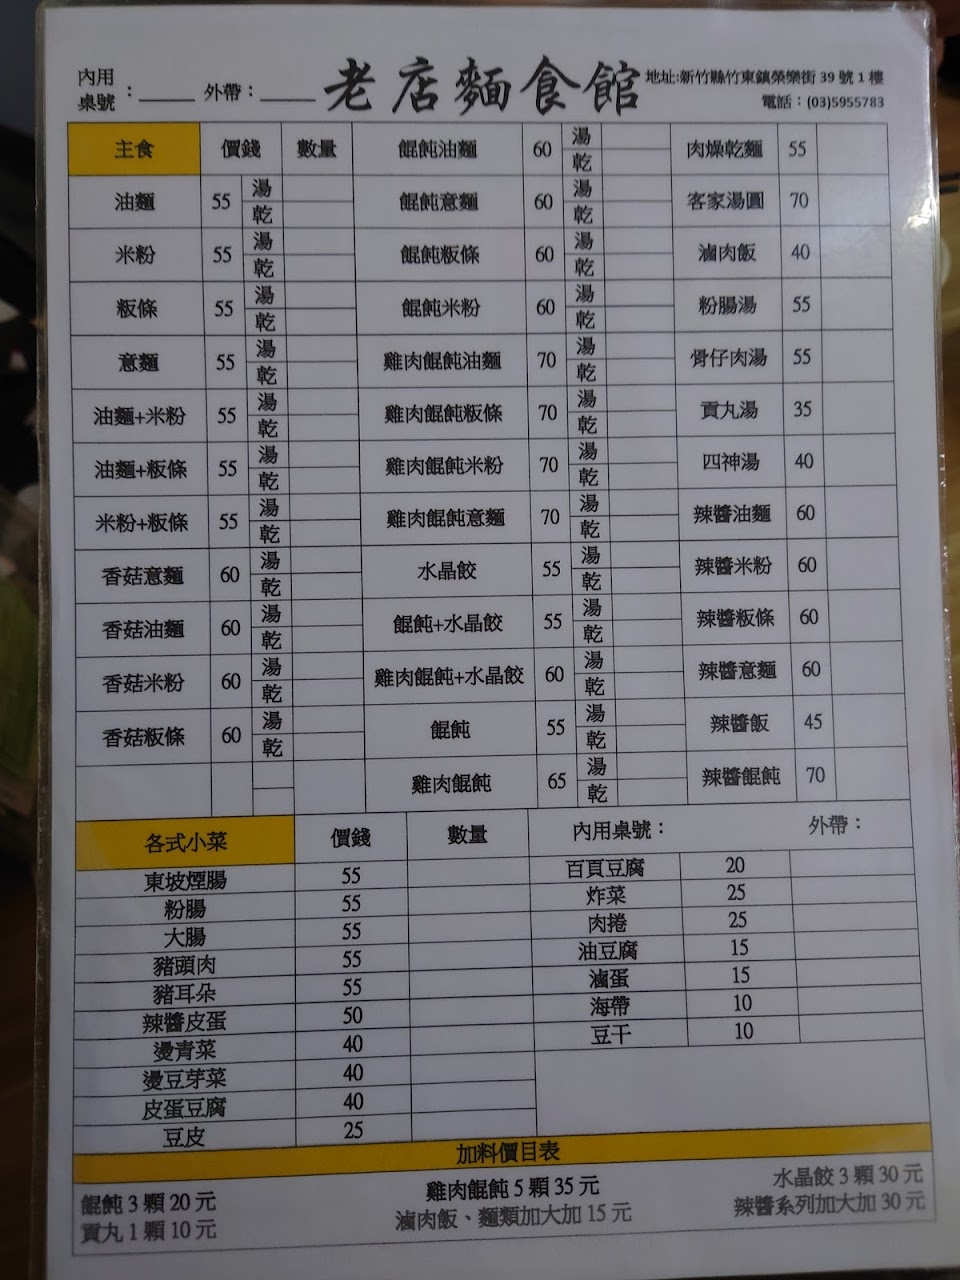 內用
桌號：_____ 外帶：_____
老店麵食館
地址:新竹縣竹東鎮榮樂街 39 號 1 樓
電話：(03)5955783
主食 價錢 數量 餛飩油麵 60 湯 乾 肉燥乾麵 55
油麵 55 湯 乾 餛飩意麵 60 湯 乾 客家湯圓 70
米粉 55 湯 乾 餛飩粄條 60 湯 乾 滷肉飯 40
粄條 55 湯 乾 餛飩米粉 60 湯 乾 粉腸湯 55
意麵 55 湯 乾 雞肉餛飩油麵 70 湯 乾 骨仔肉湯 55
油麵+米粉 55 湯 乾 雞肉餛飩粄條 70 湯 乾 貢丸湯 35
油麵+粄條 55 湯 乾 雞肉餛飩米粉 70 湯 乾 四神湯 40
米粉+粄條 55 湯 乾 雞肉餛飩意麵 70 湯 乾 辣醬油麵 60
香菇意麵 60 湯 乾 水晶餃 55 湯 乾 辣醬米粉 60
香菇油麵 60 湯 乾 餛飩+水晶餃 55 湯 乾 辣醬粄條 60
香菇米粉 60 湯 乾 雞肉餛飩+水晶餃 60 湯 乾 辣醬意麵 60
香菇粄條 60 湯 乾 餛飩 55 湯 乾 辣醬飯 45
雞肉餛飩 65 湯 乾 辣醬餛飩 70
各式小菜 價錢 數量 內用桌號： 外帶：
東坡煙腸 55 百頁豆腐 20
粉腸 55 炸菜 25
大腸 55 肉捲 25
豬頭肉 55 油豆腐 15
豬耳朵 55 滷蛋 15
辣醬皮蛋 50 海帶 10
燙青菜 40 豆干 10
燙豆芽菜 40
皮蛋豆腐 40
豆皮 25
加料價目表
餛飩 3 顆 20 元 雞肉餛飩 5 顆 35 元 水晶餃 3 顆 30 元
貢丸 1 顆 10 元 滷肉飯、麵類加大加 15 元 辣醬系列加大加 30 元